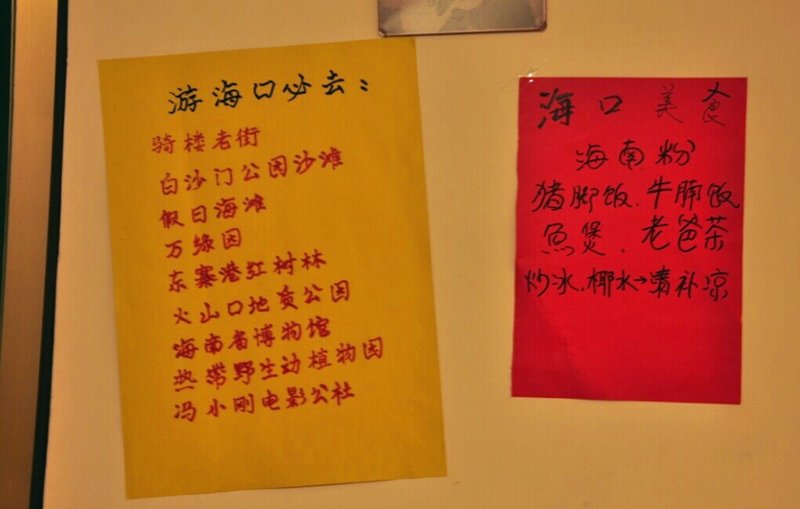 游海口必去:
骑楼老街
白沙门公园沙滩
假日海滩
万绿园
东寨港红树林
火山口地质公园
海南省博物馆
热带野生动植物园
冯小刚电影公社
海口美食
海南粉
猪脚饭、牛腩饭
魚煲、老爸茶
炒冰、椰水→清补凉